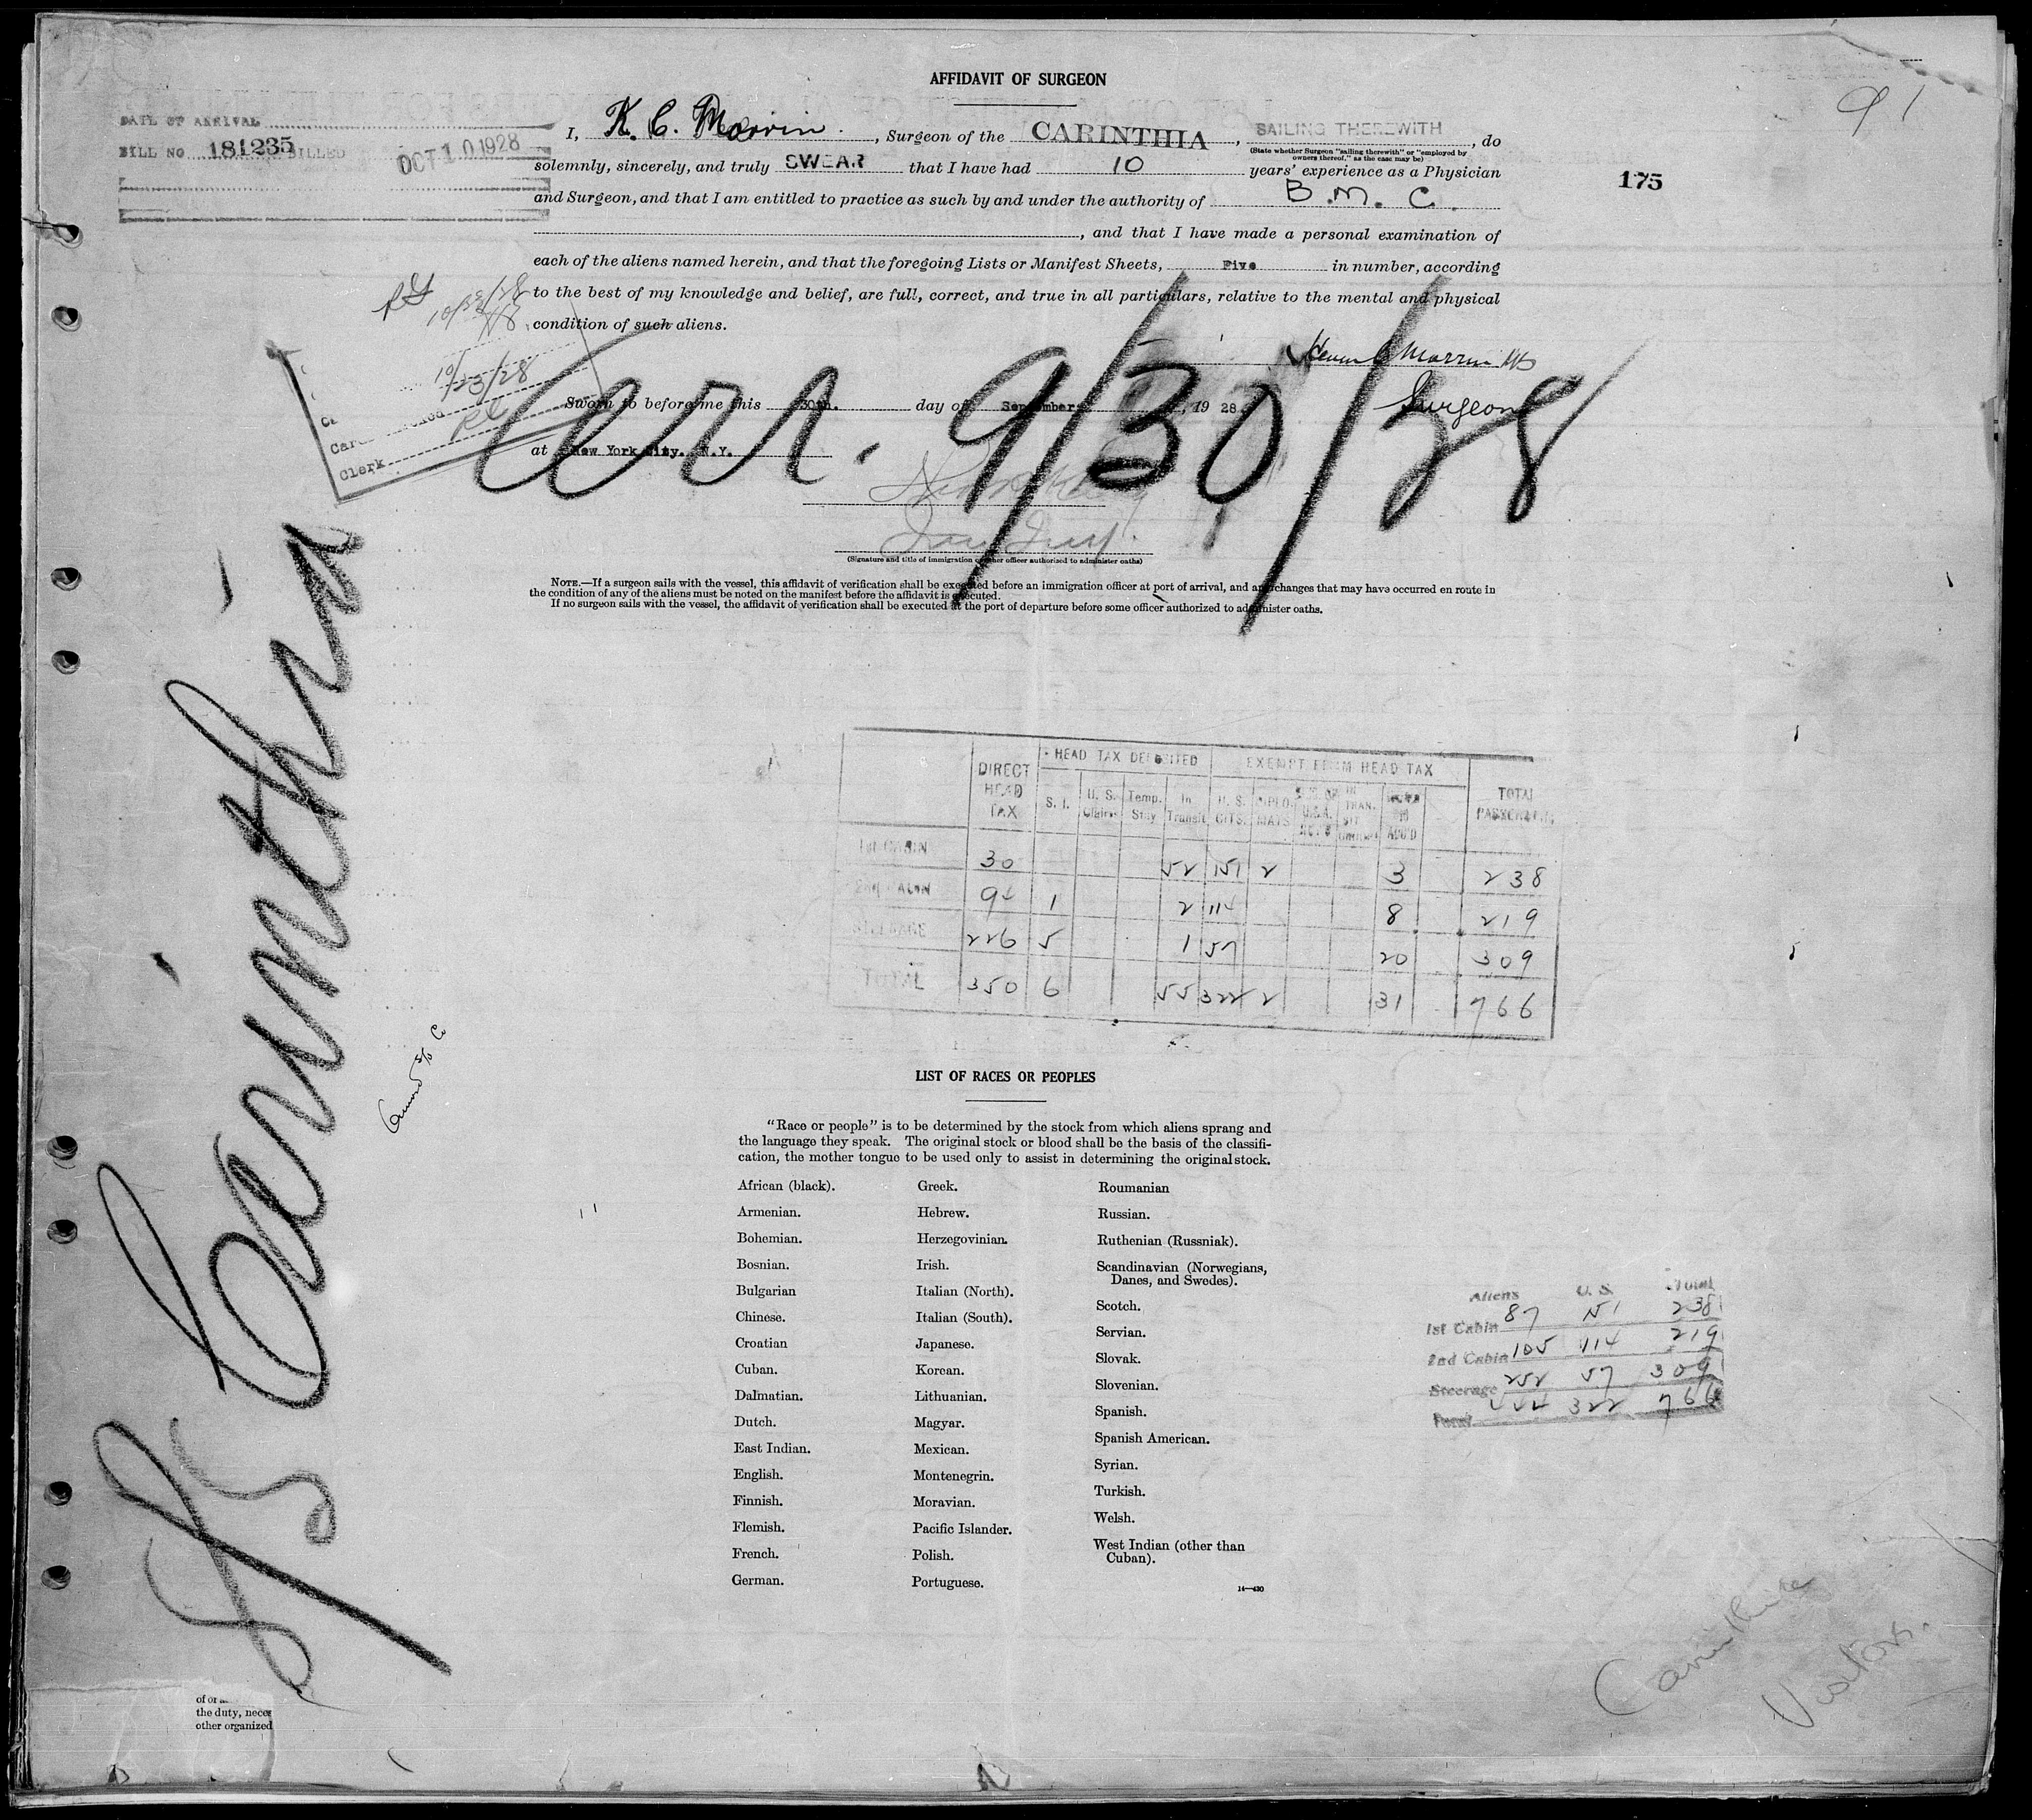 AFFIDAVIT OF SURGEON
91
DATE OF ARRIVAL
BILL NO 181235 BILLED OCT 10 1928
175
I, K. C. Morrin, Surgeon of the CARINTHIA, SAILING THEREWITH, do
(State whether Surgeon "sailing therewith" or "employed by
owners thereof," as the case may be)
solemnly, sincerely, and truly SWEAR that I have had 10 years' experience as a Physician
and Surgeon, and that I am entitled to practice as such by and under the authority of B. M. C.
, and that I have made a personal examination of
each of the aliens named herein, and that the foregoing Lists or Manifest Sheets, Five in number, according
to the best of my knowledge and belief, are full, correct, and true in all particulars, relative to the mental and physical
condition of such aliens.
10/23/28
Clerk
Morrin
Surgeon
Sworn to before me this 30th. day of September, 1928
at New York City. N.Y.
Arr. 9/30/28
(Signature and title of immigration or other officer authorized to administer oaths)
NOTE.—If a surgeon sails with the vessel, this affidavit of verification shall be executed before an immigration officer at port of arrival, and any changes that may have occurred en route in
the condition of any of the aliens must be noted on the manifest before the affidavit is executed.
If no surgeon sails with the vessel, the affidavit of verification shall be executed at the port of departure before some officer authorized to administer oaths.
S/S Carinthia
Cunard S/S Co
DIRECT HEAD TAX | HEAD TAX DEPOSITED | EXEMPT FROM HEAD TAX | TOTAL PASSENGERS
S. I. | U. S. Citzns | Temp. Stay | In Transit | U. S. CITS. | DIPLOMATS
1st CABIN 30 52 151 2 3 238
2nd CABIN 94 1 2 114 8 219
STEERAGE 226 5 1 57 20 309
TOTAL 350 6 55 322 2 31 766
LIST OF RACES OR PEOPLES
"Race or people" is to be determined by the stock from which aliens sprang and
the language they speak. The original stock or blood shall be the basis of the classifi-
cation, the mother tongue to be used only to assist in determining the original stock.
African (black).
Armenian.
Bohemian.
Bosnian.
Bulgarian
Chinese.
Croatian
Cuban.
Dalmatian.
Dutch.
East Indian.
English.
Finnish.
Flemish.
French.
German.
Greek.
Hebrew.
Herzegovinian.
Irish.
Italian (North).
Italian (South).
Japanese.
Korean.
Lithuanian.
Magyar.
Mexican.
Montenegrin.
Moravian.
Pacific Islander.
Polish.
Portuguese.
Roumanian
Russian.
Ruthenian (Russniak).
Scandinavian (Norwegians,
Danes, and Swedes).
Scotch.
Servian.
Slovak.
Slovenian.
Spanish.
Spanish American.
Syrian.
Turkish.
Welsh.
West Indian (other than
Cuban).
14—430
Aliens U. S. Total
1st Cabin 87 151 238
2nd Cabin 105 114 219
Steerage 252 57 309
Total 444 322 766
Carinthia
Visitors.
of or a
the duty, neces
other organized